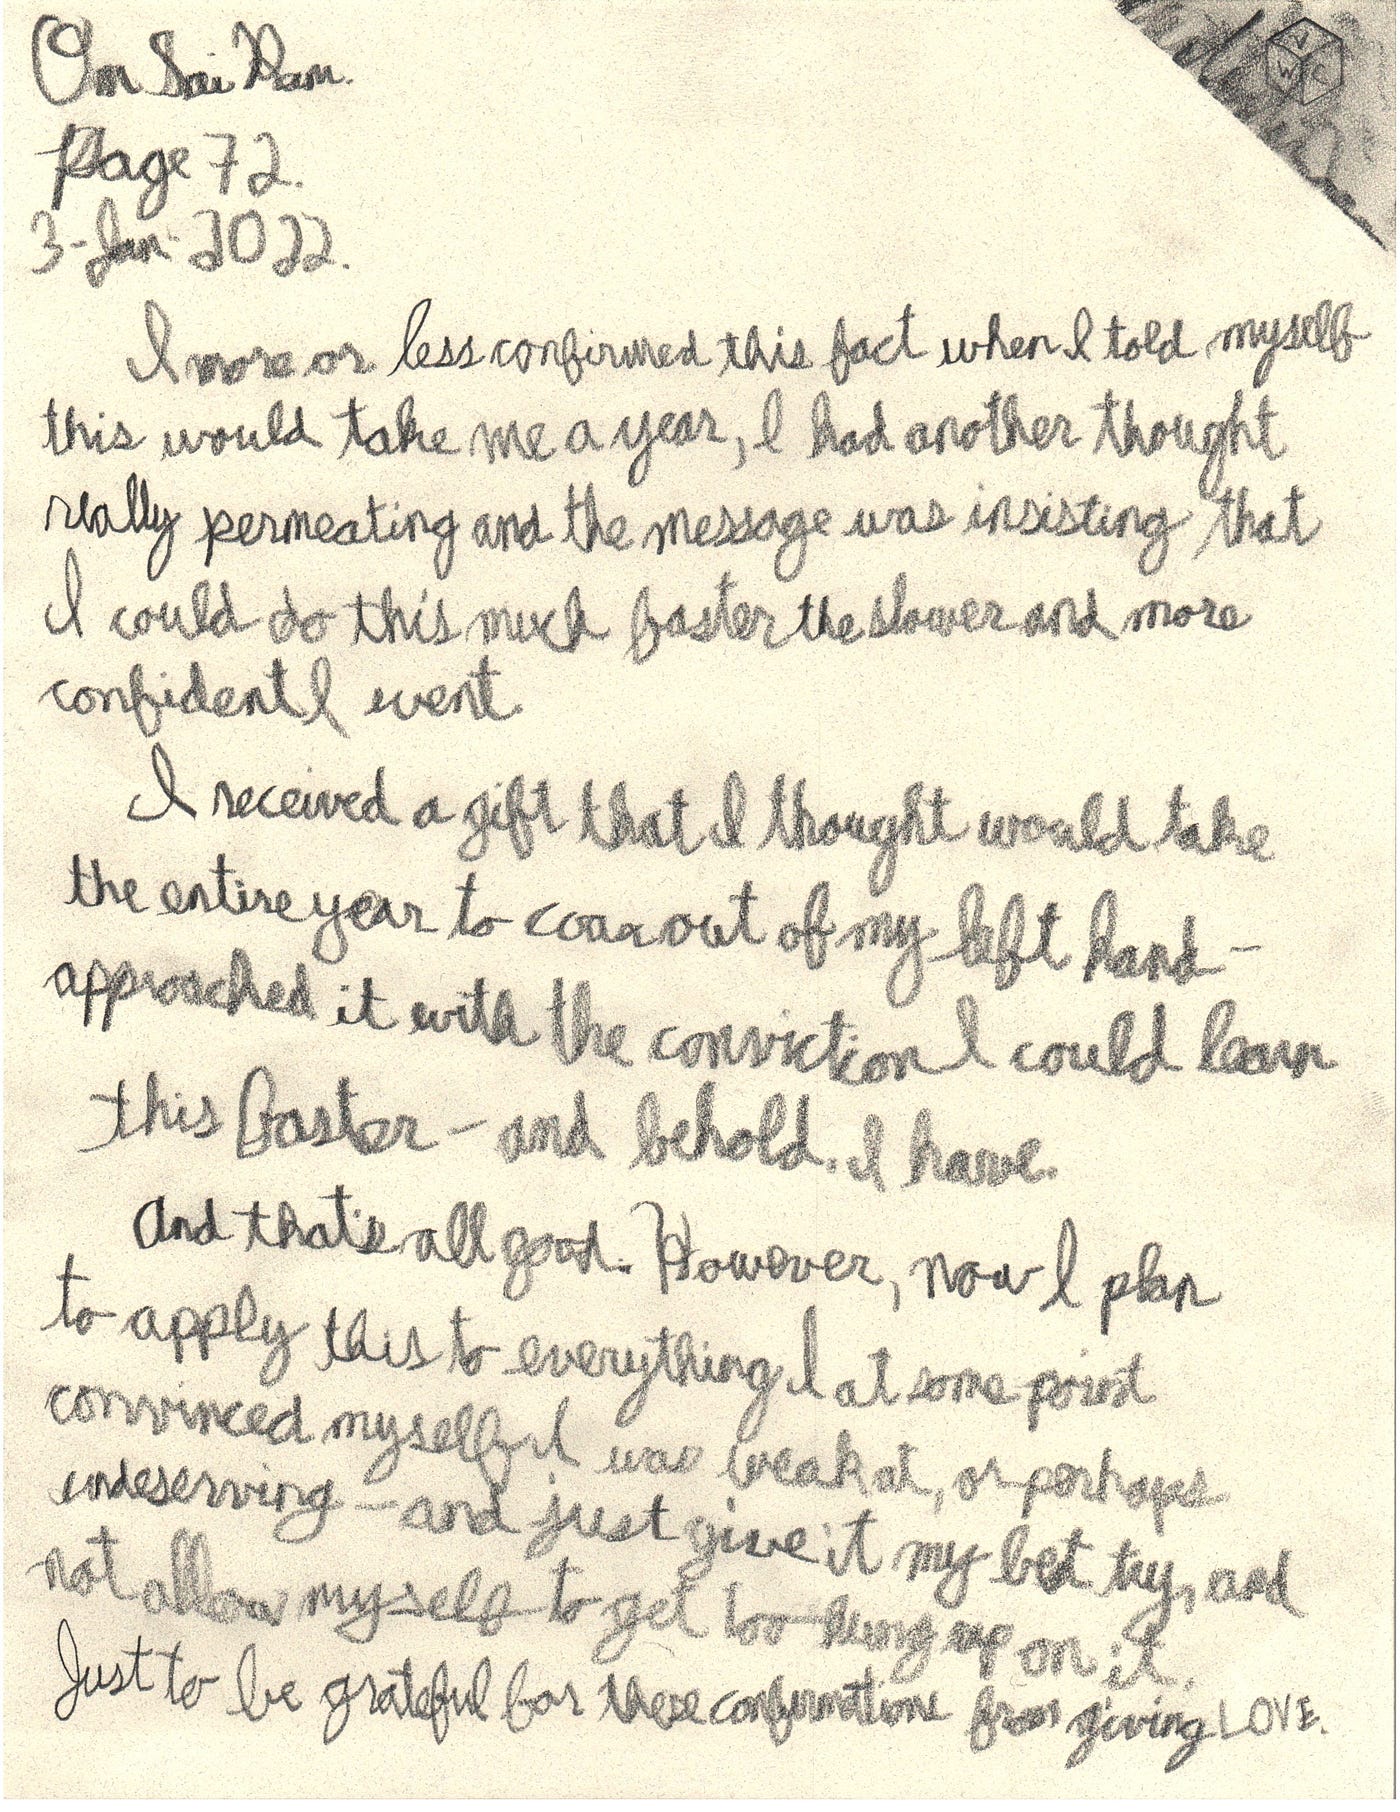 Om Sai Ram.
Page 72.
3-Jan-2022.
V
W C
I more or less confirmed this fact when I told myself
this would take me a year, I had another thought
really permeating and the message was insisting that
I could do this much faster the slower and more
confident I went.
I received a gift that I thought would take
the entire year to coax out of my left hand –
approached it with the conviction I could learn
this faster – and behold. I have.
And that's all good. However, now I plan
to apply this to everything I at some point
convinced myself I was weak at, or perhaps
undeserving – and just give it my best try, and
not allow myself to get too hung up on it.
Just to be grateful for these confirmations from giving LOVE.